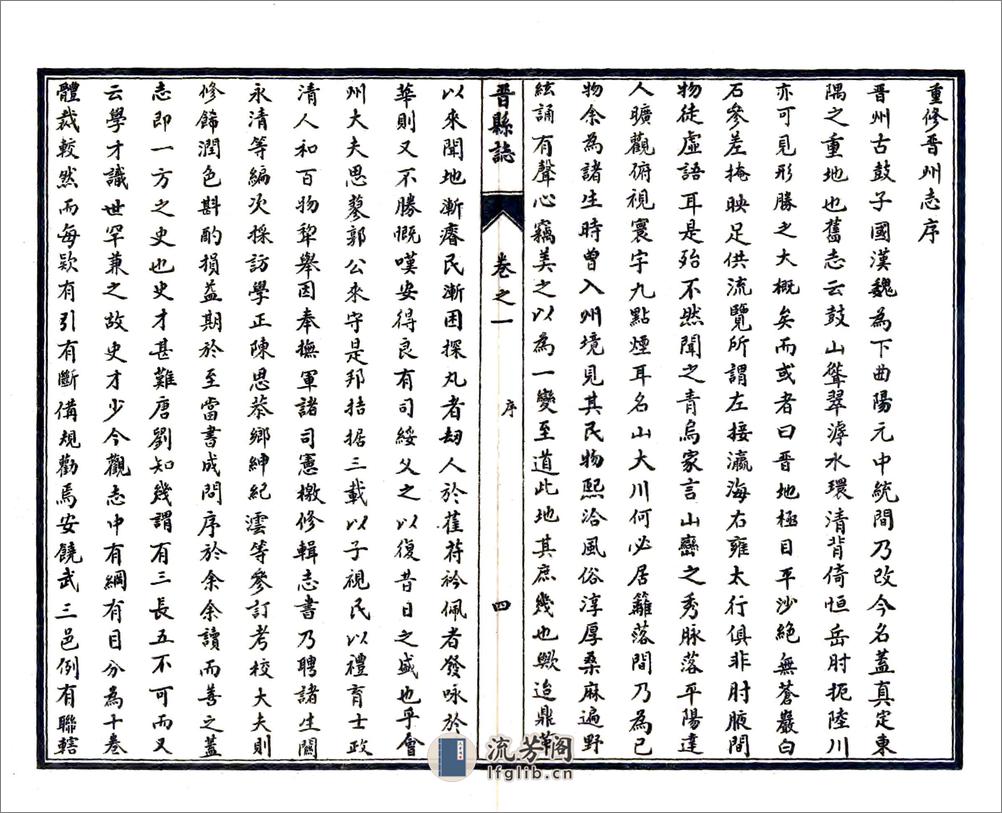 重修晋州志序
晋州古鼓子國漢魏為下曲陽元中統間乃改今名蓋真定東
隅之重地也舊志云鼓山聳翠滹水環清背倚恒岳肘扼陸川
亦可見形勝之大概矣而或者曰晋地極目平沙絶無蒼巖白
石參差掩映足供流覽所謂左接瀛海右雍太行俱非肘腋間
物徒虛語耳是殆不然聞之青烏家言山巒之秀脉落平陽達
人曠觀俯視寰宇九點煙耳名山大川何必居籬落間乃為己
物余為諸生時曾入州境見其民物熙洽風俗淳厚桑麻遍野
絃誦有聲心竊美之以為一變至道此地其庶幾也歟迨鼎革
晋縣誌
卷之一
序
四
以來聞地漸瘠民漸困探丸者刼人於萑苻衿佩者發咏於
華則又不勝慨嘆安得良有司綏父之以復昔日之盛也乎會
州大夫思蓼郭公來守是邦拮据三載以子視民以禮育士政
清人和百物犂舉因奉撫軍諸司憲檄修輯志書乃聘諸生闞
永清等編次採訪學正陳思恭鄉紳紀澐等參訂考校大夫則
修飾潤色斟酌損益期於至當書成問序於余余讀而善之蓋
志即一方之史也史才甚難唐劉知幾謂有三長五不可而又
云學才識世罕兼之故史才少今觀志中有綱有目分為十卷
體裁較然而每欵有引有斷備規勸焉安饒武三邑例有聯轄
流芳閣
lfglib.cn